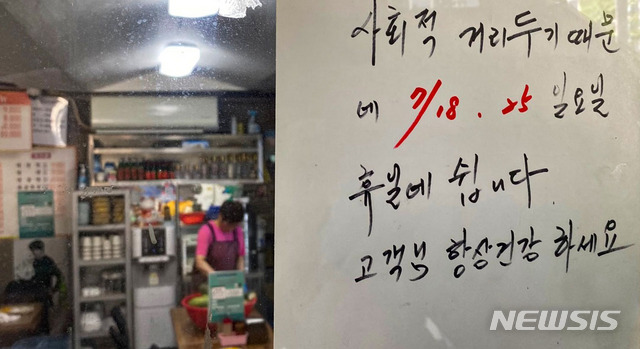 사회적 거리두기 때문
에 7/18. 25 일요일
휴일에 쉽니다.
고객님 항상건강 하세요
NEWSIS